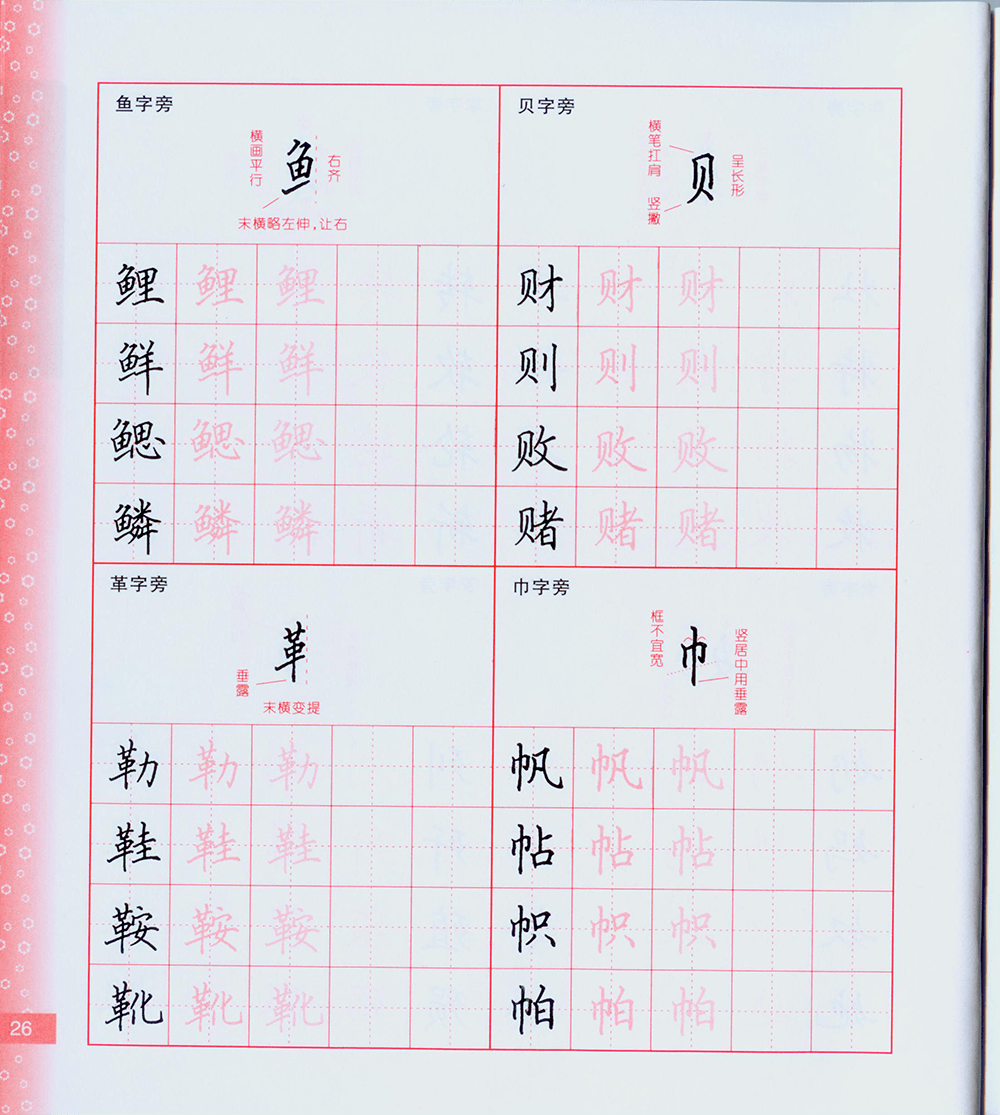 鱼字旁
横画平行
鱼
右齐
末横略左伸,让右
鲤 鲤 鲤
鲜 鲜 鲜
鳃 鳃 鳃
鳞 鳞 鳞
贝字旁
横笔扛肩
贝
呈长形
竖撇
财 财 财
则 则 则
败 败 败
赌 赌 赌
革字旁
革
垂露
末横变提
勒 勒 勒
鞋 鞋 鞋
鞍 鞍 鞍
靴 靴 靴
巾字旁
框不宜宽
巾
竖居中用垂露
帆 帆 帆
帖 帖 帖
帜 帜 帜
帕 帕 帕
26